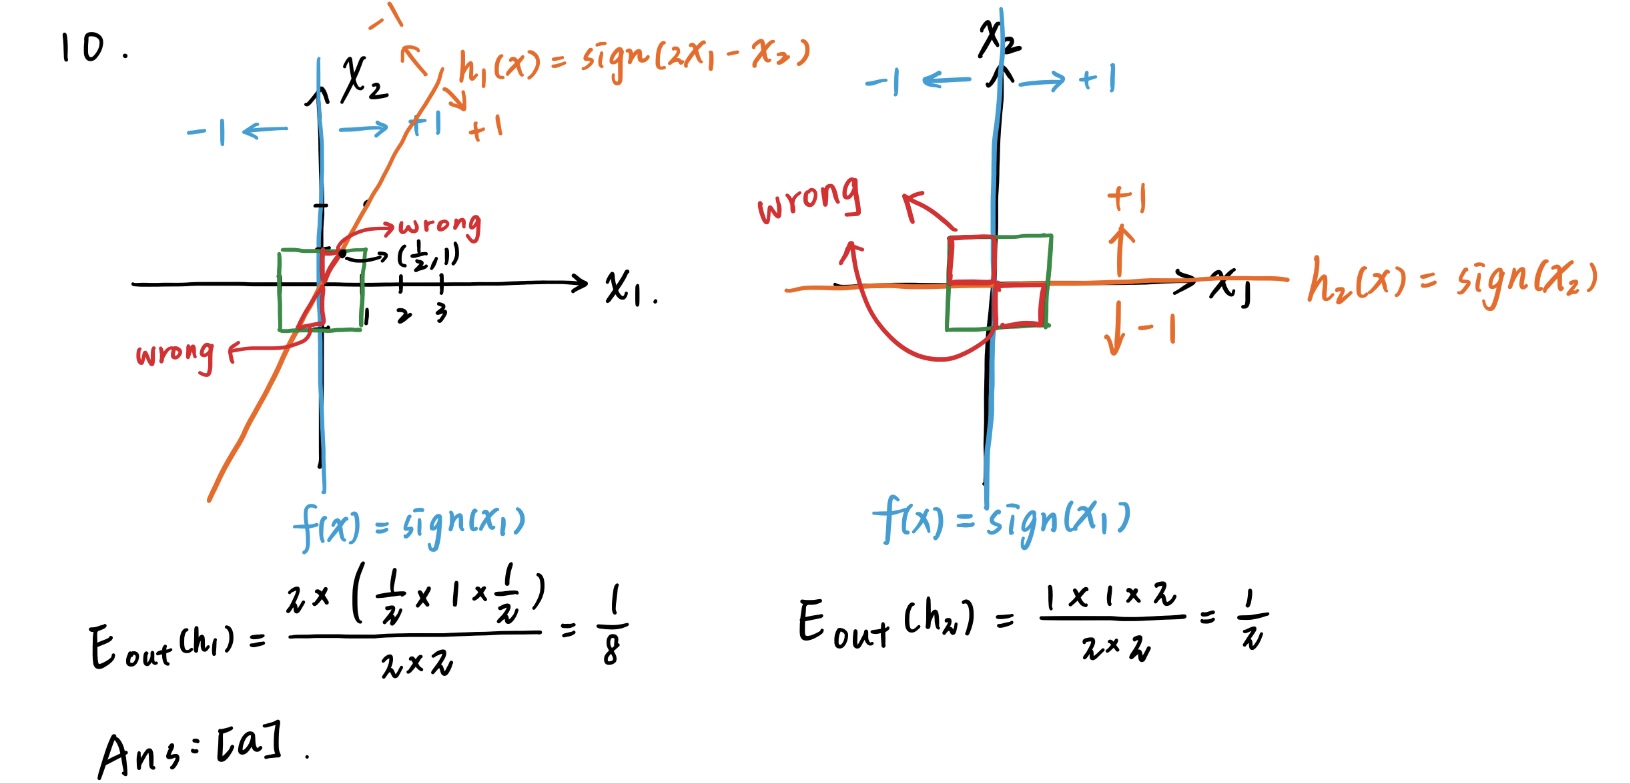 10.
-1
h₁(x) = sign(2x₁ - x₂)
x₂
-1 ← → +1
+1
wrong
(½, 1)
x₁.
1 2 3
wrong
f(x) = sign(x₁)
E out (h₁) = 2 × (½ × 1 × ½) / 2×2 = 1/8
x₂
-1 ← → +1
wrong
+1
x₁
h₂(x) = sign(x₂)
-1
f(x) = sign(x₁)
E out (h₂) = 1 × 1 × 2 / 2×2 = 1/2
Ans: [a].